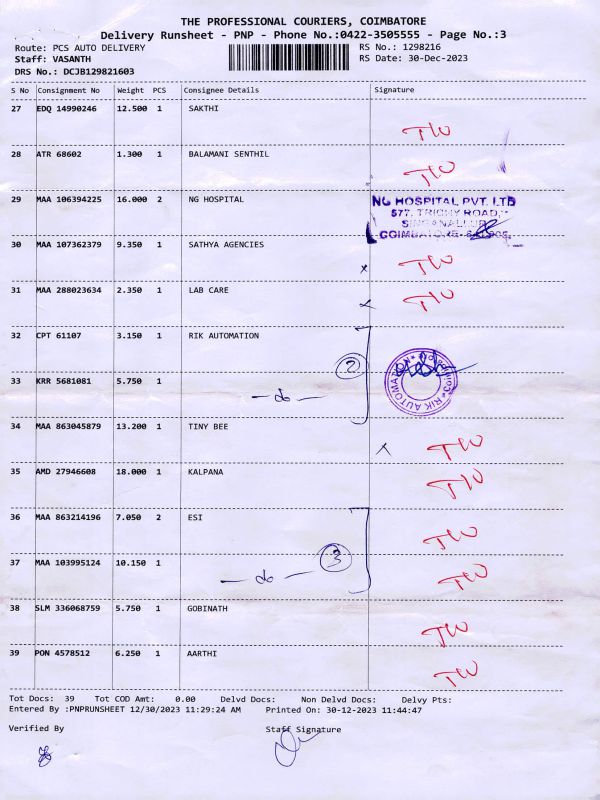 THE PROFESSIONAL COURIERS, COIMBATORE
Delivery Runsheet - PNP - Phone No.:0422-3505555 - Page No.:3
Route: PCS AUTO DELIVERY RS No.: 1298216
Staff: VASANTH RS Date: 30-Dec-2023
DRS No.: DCJB129821603
S No Consignment No Weight PCS Consignee Details Signature
27 EDQ 14990246 12.500 1 SAKTHI
TW
28 ATR 68602 1.300 1 BALAMANI SENTHIL
TW
29 MAA 106394225 16.000 2 NG HOSPITAL
NG HOSPITAL PVT. LTD
577, TRICHY ROAD,
SINGANALLUR
COIMBATORE
30 MAA 107362379 9.350 1 SATHYA AGENCIES
x TW
31 MAA 288023634 2.350 1 LAB CARE
x TW
32 CPT 61107 3.150 1 RIK AUTOMATION
2
RIK AUTOMATION
33 KRR 5681081 5.750 1
- do -
34 MAA 863045879 13.200 1 TINY BEE
x TW
35 AMD 27946608 18.000 1 KALPANA
TW
36 MAA 863214196 7.050 2 ESI
TW
37 MAA 103995124 10.150 1
- do - 3 TW
38 SLM 336068759 5.750 1 GOBINATH
TW
39 PON 4578512 6.250 1 AARTHI
TW
Tot Docs: 39 Tot COD Amt: 0.00 Delvd Docs: Non Delvd Docs: Delvy Pts:
Entered By :PNPRUNSHEET 12/30/2023 11:29:24 AM Printed On: 30-12-2023 11:44:47
Verified By Staff Signature